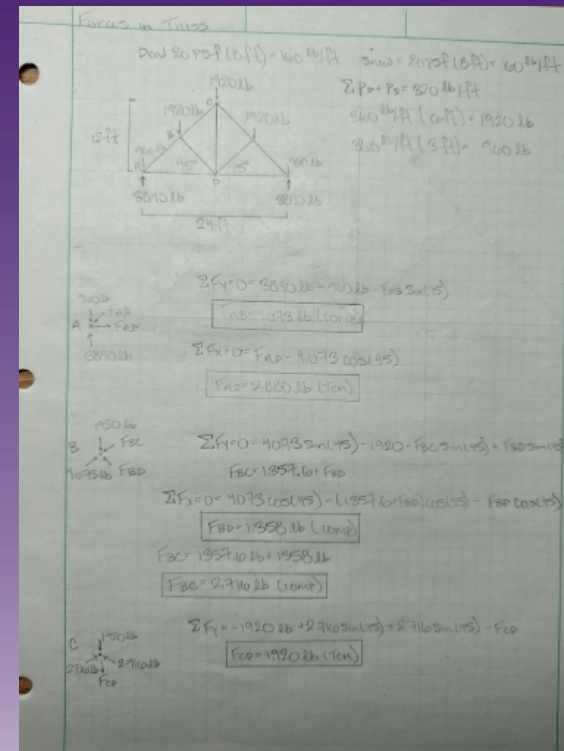 Forces in Truss
Dead 20 psf (8ft) = 160 lb/ft snow = 20 psf (8ft) = 160 lb/ft
ΣPD + PS = 320 lb/ft
(6ft) = 1920 lb
(3ft) = 960 lb
1920 lb
C
1920 lb 1920 lb
B
12 ft
960 lb 960 lb
A 45° 45°
D
3840 lb 3840 lb
24 ft
ΣFy=0= 3840 lb - 960 lb - FAB Sin(45)
960 lb
FAB
A FAD
3840 lb
FAB= 4073 lb (comp)
ΣFx=0= FAD - 4073 cos(45)
FAD= 2880 lb (Ten)
1920 lb
B FBC
4073 lb FBD
ΣFy=0= 4073 Sin(45) - 1920 - FBC Sin(45) + FBD Sin(45)
FBC= 1357.6 + FBD
ΣFx=0= 4073 cos(45) - (1357.6+FBD) cos(45) - FBD cos(45)
FBD= 1358 lb (comp)
FBC= 1357.6 lb + 1358 lb
FBC= 2716 lb (comp)
C 1920 lb
2716 lb 2716 lb
FCD
ΣFy= -1920 lb + 2716 Sin(45) + 2716 Sin(45) - FCD
FCD= 1920 lb (Ten)